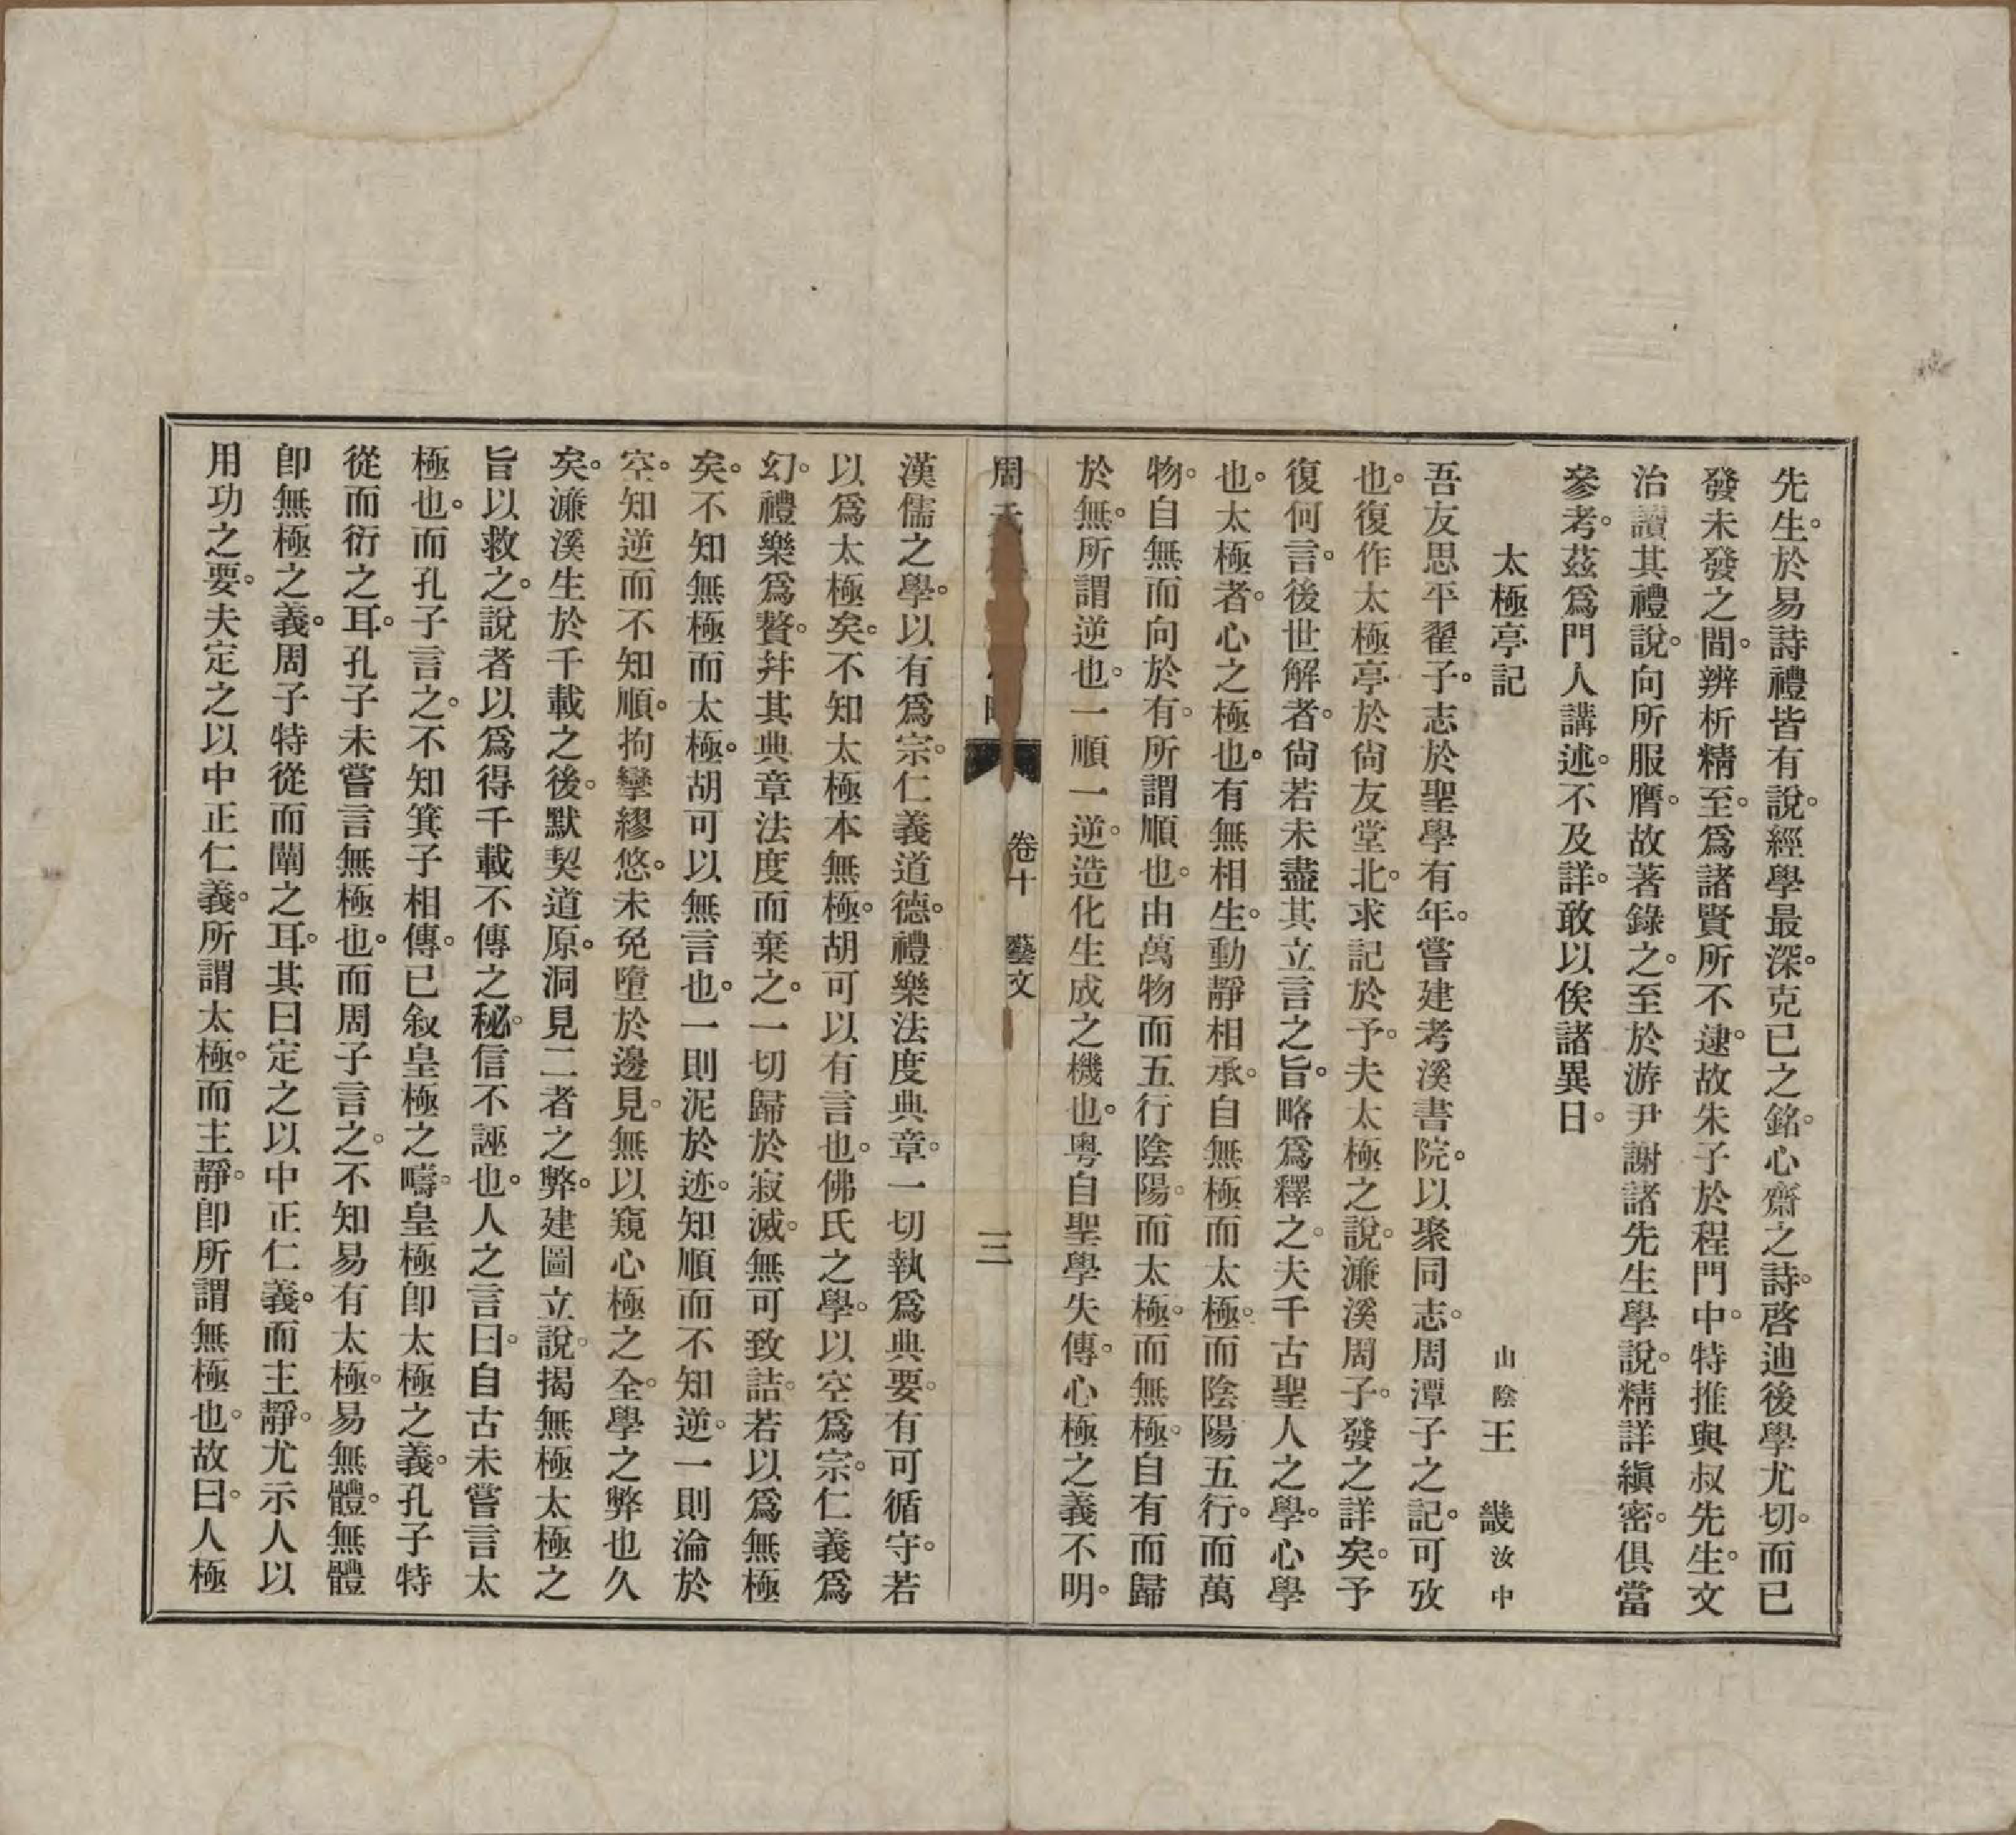 先生。於易詩禮皆有說。經學最深。克已之銘。心齋之詩。啓迪後學尤切。而已
發未發之間。辨析精至。爲諸賢所不逮。故朱子於程門中。特推與叔先生。文
治讀其禮說。向所服膺。故著錄之。至於游尹謝諸先生學說。精詳縝密。俱當
參考。茲爲門人講述。不及詳。敢以俟諸異日。
太極亭記
山陰王畿汝中
吾友思平翟子。志於聖學有年。嘗建考溪書院。以聚同志。周潭子之記。可攷
也。復作太極亭於尙友堂北。求記於予。夫太極之說。濂溪周子。發之詳矣。予
復何言。後世解者。尙若未盡其立言之旨。略爲釋之。夫千古聖人之學。心學
也。太極者。心之極也。有無相生。動靜相承。自無極而太極。而陰陽五行。而萬
物。自無而向於有。所謂順也。由萬物而五行陰陽。而太極。而無極。自有而歸
於無。所謂逆也。一順一逆。造化生成之機也。粵自聖學失傳。心極之義不明。
周氏
卷十 藝文
三
漢儒之學。以有爲宗。仁義道德。禮樂法度典章。一切執爲典要。有可循守。若
以爲太極矣。不知太極本無極。胡可以有言也。佛氏之學。以空爲宗。仁義爲
幻。禮樂爲贅。幷其典章法度而棄之。一切歸於寂滅。無可致詰。若以爲無極
矣。不知無極而太極。胡可以無言也。一則泥於迹。知順而不知逆。一則淪於
空。知逆而不知順。拘攣繆悠。未免墮於邊見。無以窺心極之全。學之弊也久
矣。濂溪生於千載之後。默契道原。洞見二者之弊。建圖立說。揭無極太極之
旨以救之。說者以爲得千載不傳之秘。信不誣也。人之言曰。自古未嘗言太
極也。而孔子言之。不知箕子相傳。已叙皇極之疇。皇極卽太極之義。孔子特
從而衍之耳。孔子未嘗言無極也。而周子言之。不知易有太極。易無體。無體
卽無極之義。周子特從而闡之耳。其曰定之以中正仁義。而主靜。尤示人以
用功之要。夫定之以中正仁義。所謂太極。而主靜。卽所謂無極也。故曰。人極